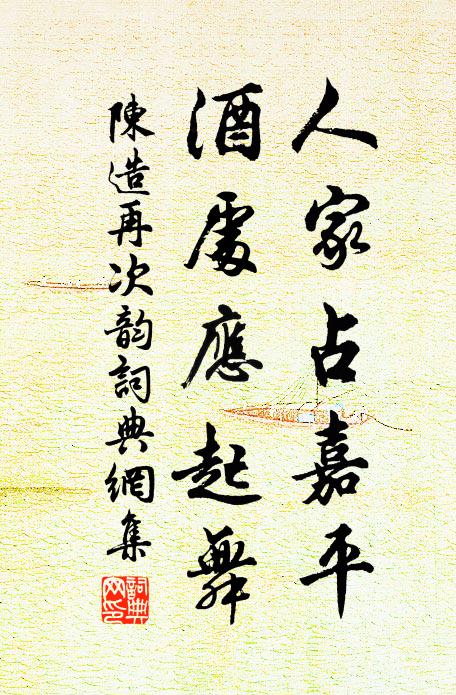 人家占嘉平
酒處應起舞
陳造再次韵詞典網集
詞典網印